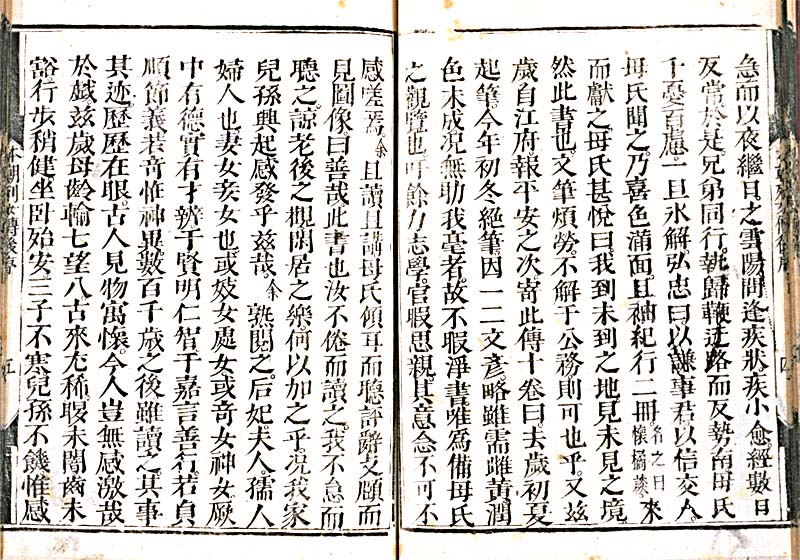 急而以夜繼日之雲陽問逢疾狀疾小愈經數日
反當於是兄弟同行執歸鞭近路而反勢南母氏
千憂百慮一旦氷解弘忠曰以謙事君以信交人
母氏聞之乃喜色滿面且袖紀行二冊名之曰懷橘談來
而獻之母氏甚悅曰我到未到之地見未見之境
然此書也文筆煩勞不解于公務則可也乎又玆
歲自江府報平安之次寄此傳十卷曰去歲初夏
起筆今年初冬絕筆因一二文彥略雖需雌黃潤
色未成况無助我毫者故不暇淨書唯爲備母氏
之觀覽也吁餘力志學官暇思親其意念不可不
感嗟焉余且讀且講母氏傾耳而聽評辭支頤而
見圖像曰善哉此書也汝不倦而讀之我不怠而
聽之諒老後之樹閑居之樂何以加之乎况我家
兒孫興起感發乎玆哉余熟閱之后妃夫人孺人
婦人也妻女妾女也或妓女處女或奇女神女厥
中有德實有才辨于賢明仁智于嘉言善行若貞
順節義若奇恠神異數百千歲之後雖讀之其事
其迹歷歷在眼古人見物寓懷今人豈無感激哉
於戲玆歲母齡踰七望八古來尤稀眼未闇齒未
豁行步稍健坐臥殆安三子不寒兒孫不饑惟感
本朝列女傳後序
五